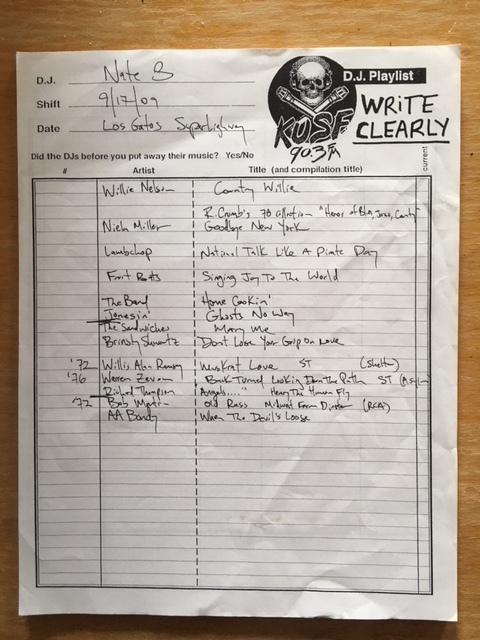 D.J. Nate B
D.J. Playlist
Shift 9/17/09
WRITE CLEARLY
Date Los Gatos Superhighway
KUSF 90.3 FM
Did the DJs before you put away their music? Yes/No
current
# Artist Title (and compilation title)
Willie Nelson Country Willie
R. Crumb's 78 collection "Heros of Blues, Jazz, Country"
Miller Goodbye New York
Lambchop National Talk Like A Pirate Day
Singing Joy To The World
The Band Home Cookin'
Jonesin' Ghosts No Way
The Sandwiches Marry Me
Brinsley Shwartz Don't Lose Your Grip on Love
'72 Willis Alan Ramsey Muskrat Love ST (Shelter)
'76 Warren Zevon Back Turned Lookin Down The Path ST (Asylum
Richard Thompson Angels...." Henry The Human Fly
'72 Bob Martin Old Rass Midwest Farm Disaster (RCA)
AA Bondy When The Devil's Loose